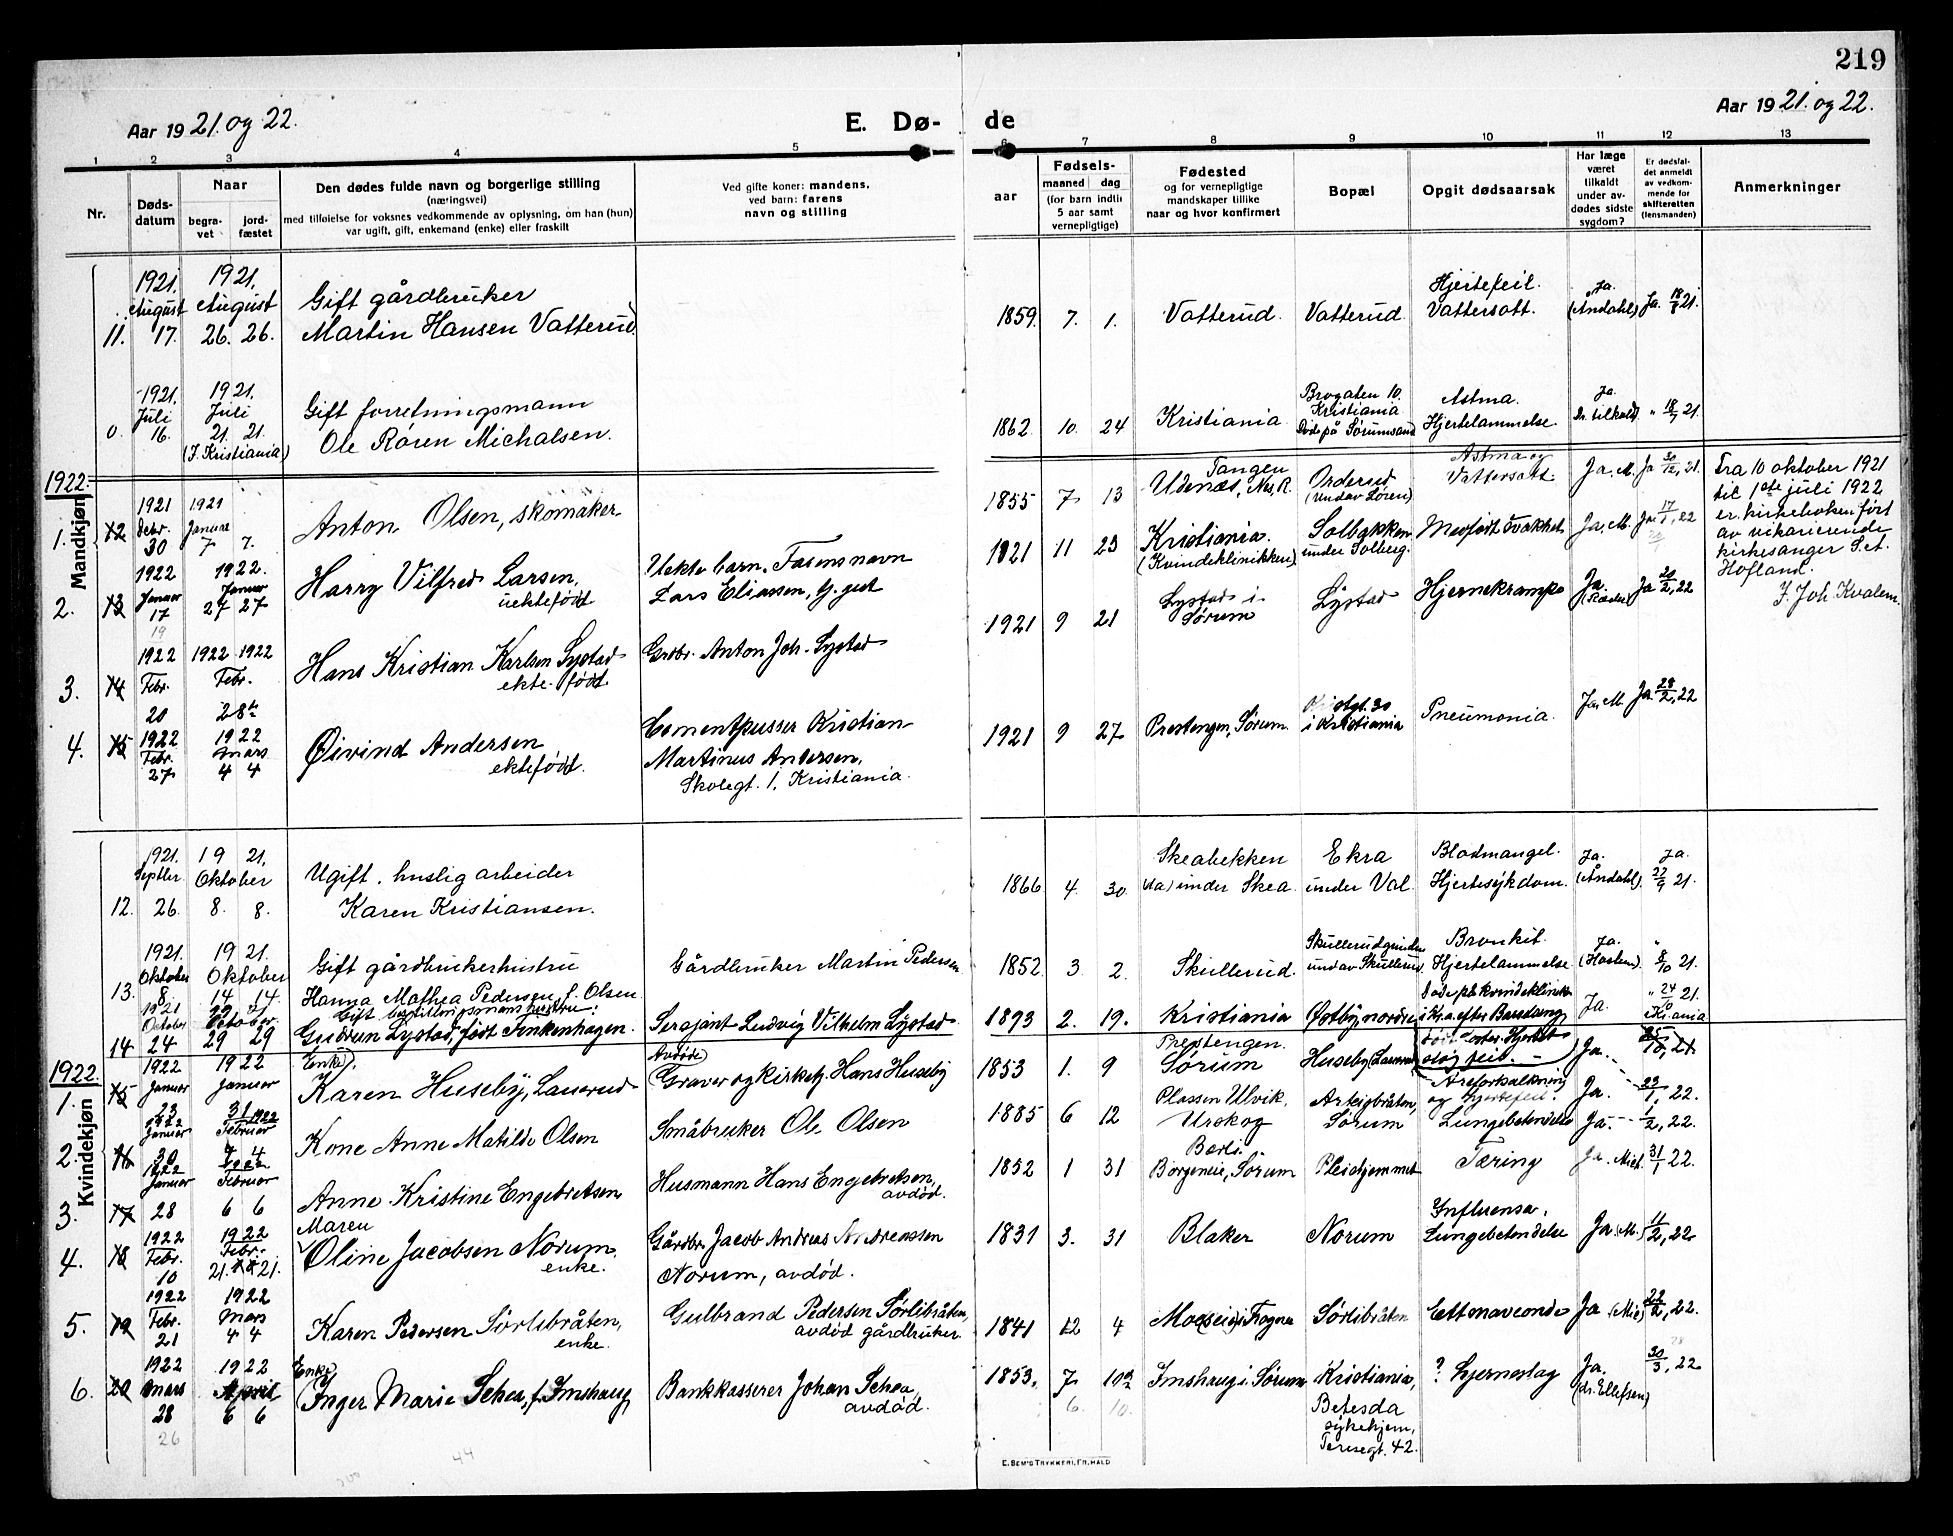 219
Aar 19 21. og 22.
E. Dø-
de
Aar 19 21. og 22.
1 2 3 4 5 6 7 8 9 10 11 12 13
Nr.
Døds-
datum
Naar
begra-
vet
jord-
fæstet
Den dødes fulde navn og borgerlige stilling
(næringsvei)
med tilføielse for voksnes vedkommende av oplysning, om han (hun)
var ugift, gift, enkemand (enke) eller fraskilt
Ved gifte koner: mandens,
ved barn: farens
navn og stilling
Fødsels-
aar
maaned dag
(for barn indtil
5 aar samt
vernepligtige)
Fødested
og for vernepligtige
mandskaper tillike
naar og hvor konfirmert
Bopæl
Opgit dødsaarsak
Har læge
været
tilkaldt
under av-
dødes sidste
sygdom?
Er dødsfal-
det anmeldt
av vedkom-
mende for
skifteretten
(lensmanden)
Anmerkninger
Mandkjøn
11.
1921. August 17.
1921. August 26. 26.
Gift gårdbruker
Martin Hansen Vatterud.
1859. 7. 1.
Vatterud.
Vatterud
Hjertefeil.
Vattersott.
Ja.
(Åndahl)
Ja. 18/8 21.
0.
1921. Juli 16.
1921. Juli 21. 21.
(I. Kristiania)
Gift forretningsmann
Ole Røren Michalsen.
1862. 10. 24
Kristiania
Brogaten 10.
Kristiania
Døde på Sørumsand
Astma.
Hjertelammelse.
Ja.
Dr. tilkald
" 18/7 21.
1922.
1. 12
1921 Debr. 30
1921 Januar 7 7.
Anton Olsen, skomaker
1855 7 13
Tangen
Udenæs, Nes, R.
Orderud
(undav Søren)
Astma og
Vattersott.
Ja. M.
Ja 30/12, 21.
Fra 10 oktober 1921
til 1ste juli 1922
er kirkeboken ført
av vikarierende
kirkesanger S. et.
Hofland.
J. Joh. Kvalem.
2. 13
1922 Januar 17
19
1922. Januar 27 27
Harry Vilfred Larsen,
uektefødt
Uekte barn. Farens navn
Lars Eliassen, g. gut
1921 11 23
Kristiania.
(Kvindeklinikken)
Solbakken
under Solberg.
Medfødt svakhet
Ja. M.
Ja. 17/1, 22
3. 14
1922 Febr. 20
1922 1922 Febr. 28de
Hans Kristian Karlsen Lystad
ekte født.
Grdbr. Anton Joh. Lystad
1921 9 21
Lystad i
Sørum
Lystad
Hjernekrampe
Ja
Ja 20/2, 22
4. 15
1922 Febr. 27
1922 Mars 4 4
Øivind Andersen
ektefødt.
Cementpusser Kristian
Martinus Andersen,
Skolegt. 1, Kristiania.
1921 9 27
Prestengen, Sørum.
i Kristiania
Pneumonia.
Ja, M.
Ja 28/2, 22
Kvindekjøn
12.
1921. Septbr 26.
1921. Oktober 8. 8.
Ugift. huslig arbeider
Karen Kristiansen.
1866 4. 30
Skeabekken
under Skea.
Ekra
under Val
Blodmangel.
Hjertesykdom.
Ja.
(Åndahl)
Ja.
27/9 21.
13.
1921. Oktober 8.
1921. Oktober 14 14.
Gift gårdbrukerhustru
Hanna Mathea Pedersen, f. Olsen.
Gårdbruker Martin Pedersen
1852. 3. 2.
Skullerud.
Skullerudgrinden
undav Skullerud.
Bronkit.
Hjertelammelse
Ja.
" 8/10 21.
14
1921 October 24
1921 October 29 29
Gift bestillingsmanns hustru:
Gudrun Lystad, født Funkenhagen.
Sersjant Ludvig Vilhelm Lystad
1893 2. 19.
Kristiania
Østby, nordre
Døde på kvindeklinik
i Kr.a. efter Barselsang,
Ja.
" 24/10 21.
i Kr.ania
1922.
1. 15
1922 Januar 23
1922 Januar 31
(Enke).
Karen Huseby, Lauerud
Avdøde
Graver og kirketj. Hans Huseby
1853 1. 9
Prestengen.
Sørum
Huseby (Lauerud
Åreforkalkning
og hjertefeil.
Ja.
Ja.
23/1, 22.
2. 16
1922 Januar 30
1922 Februar 4 4
Kone Anne Matilde Olsen
Småbruker Ole Olsen
1885 6 12
Plassen Ulvik.
Urskog
Arteigbråten,
Sørum
Lungebetendelse
Ja.
1/2, 22.
3. 17
1922 Januar 28
1922 Februar 6 6
Anne Kristine Engebretsen
Husmann Hans Engebretsen,
avdød.
1852 1 31
Borgeneie, Sørum
Pleiehjemmet
Tæring
Ja.
31/1 22.
4. 18
1922 Febr. 10
1922 Febr. 21. 21.
Maren
Oline Jacobsen Norum,
enke.
Gårdbr. Jacob Andreas Andreassen
Norum, avdød.
1831 3. 31
Blaker
Norum
Influensa.
Lungebetendelse
Ja (M.)
11/2, 22
5. 19
1922 Febr. 21
1922 Mars 4 4
Karen Pedersen Sørlibråten,
enke.
Gulbrand Pedersen Sørlibråten,
avdød gårdbruker.
1841 12 4
Sørlibråten
Ja (Mie)
22/2, 22.
6. 20
1922 Mars 28
26
1922 April 6 6
Enke
Inger Marie Schea, f. Imshaug
Bankkasserer Johan Schea,
avdød.
1853. 7
6. 10.
Imshaug i Sørum
Kristiania,
Betesda
sykehjem,
Teresegt. 42.
? hjerneslag
Ja.
(dr. Ellefsen)
30/3, 22
44
E. SEM'S TRYKKERI, FR.HALD